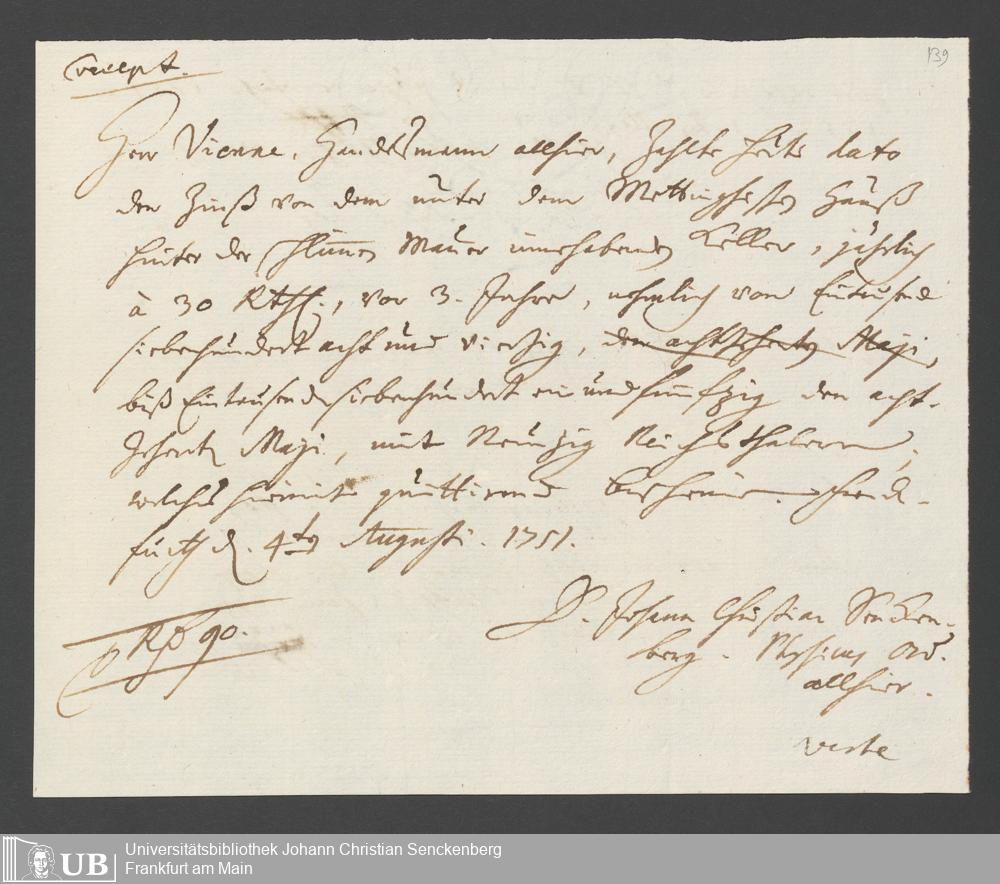 139
Concept.
Herr Vienne, Handelsmann allhier, Zahlte heute dato
den Zinß von dem unter dem Mettinghschen Hauß
hinter der schlimmen Mauer innehabenden Keller, jährlich
à 30 Rthlr., vor 3. Jahre, nehmlich von Eintausend
siebenhundert acht und vierzig, den achtzehenten Maji,
biß Eintausend siebenhundert ein und funfzig den acht-
zehenten Maji, mit Neunzig Reichsthalern,
welches hiermit quittirend bescheine. Franck-
furth d. 4ten Augusti. 1751.
D. Johann Christian Sencken-
berg. Physicus Ord.
allhier.
90.
verte
UB Universitätsbibliothek Johann Christian Senckenberg
Frankfurt am Main